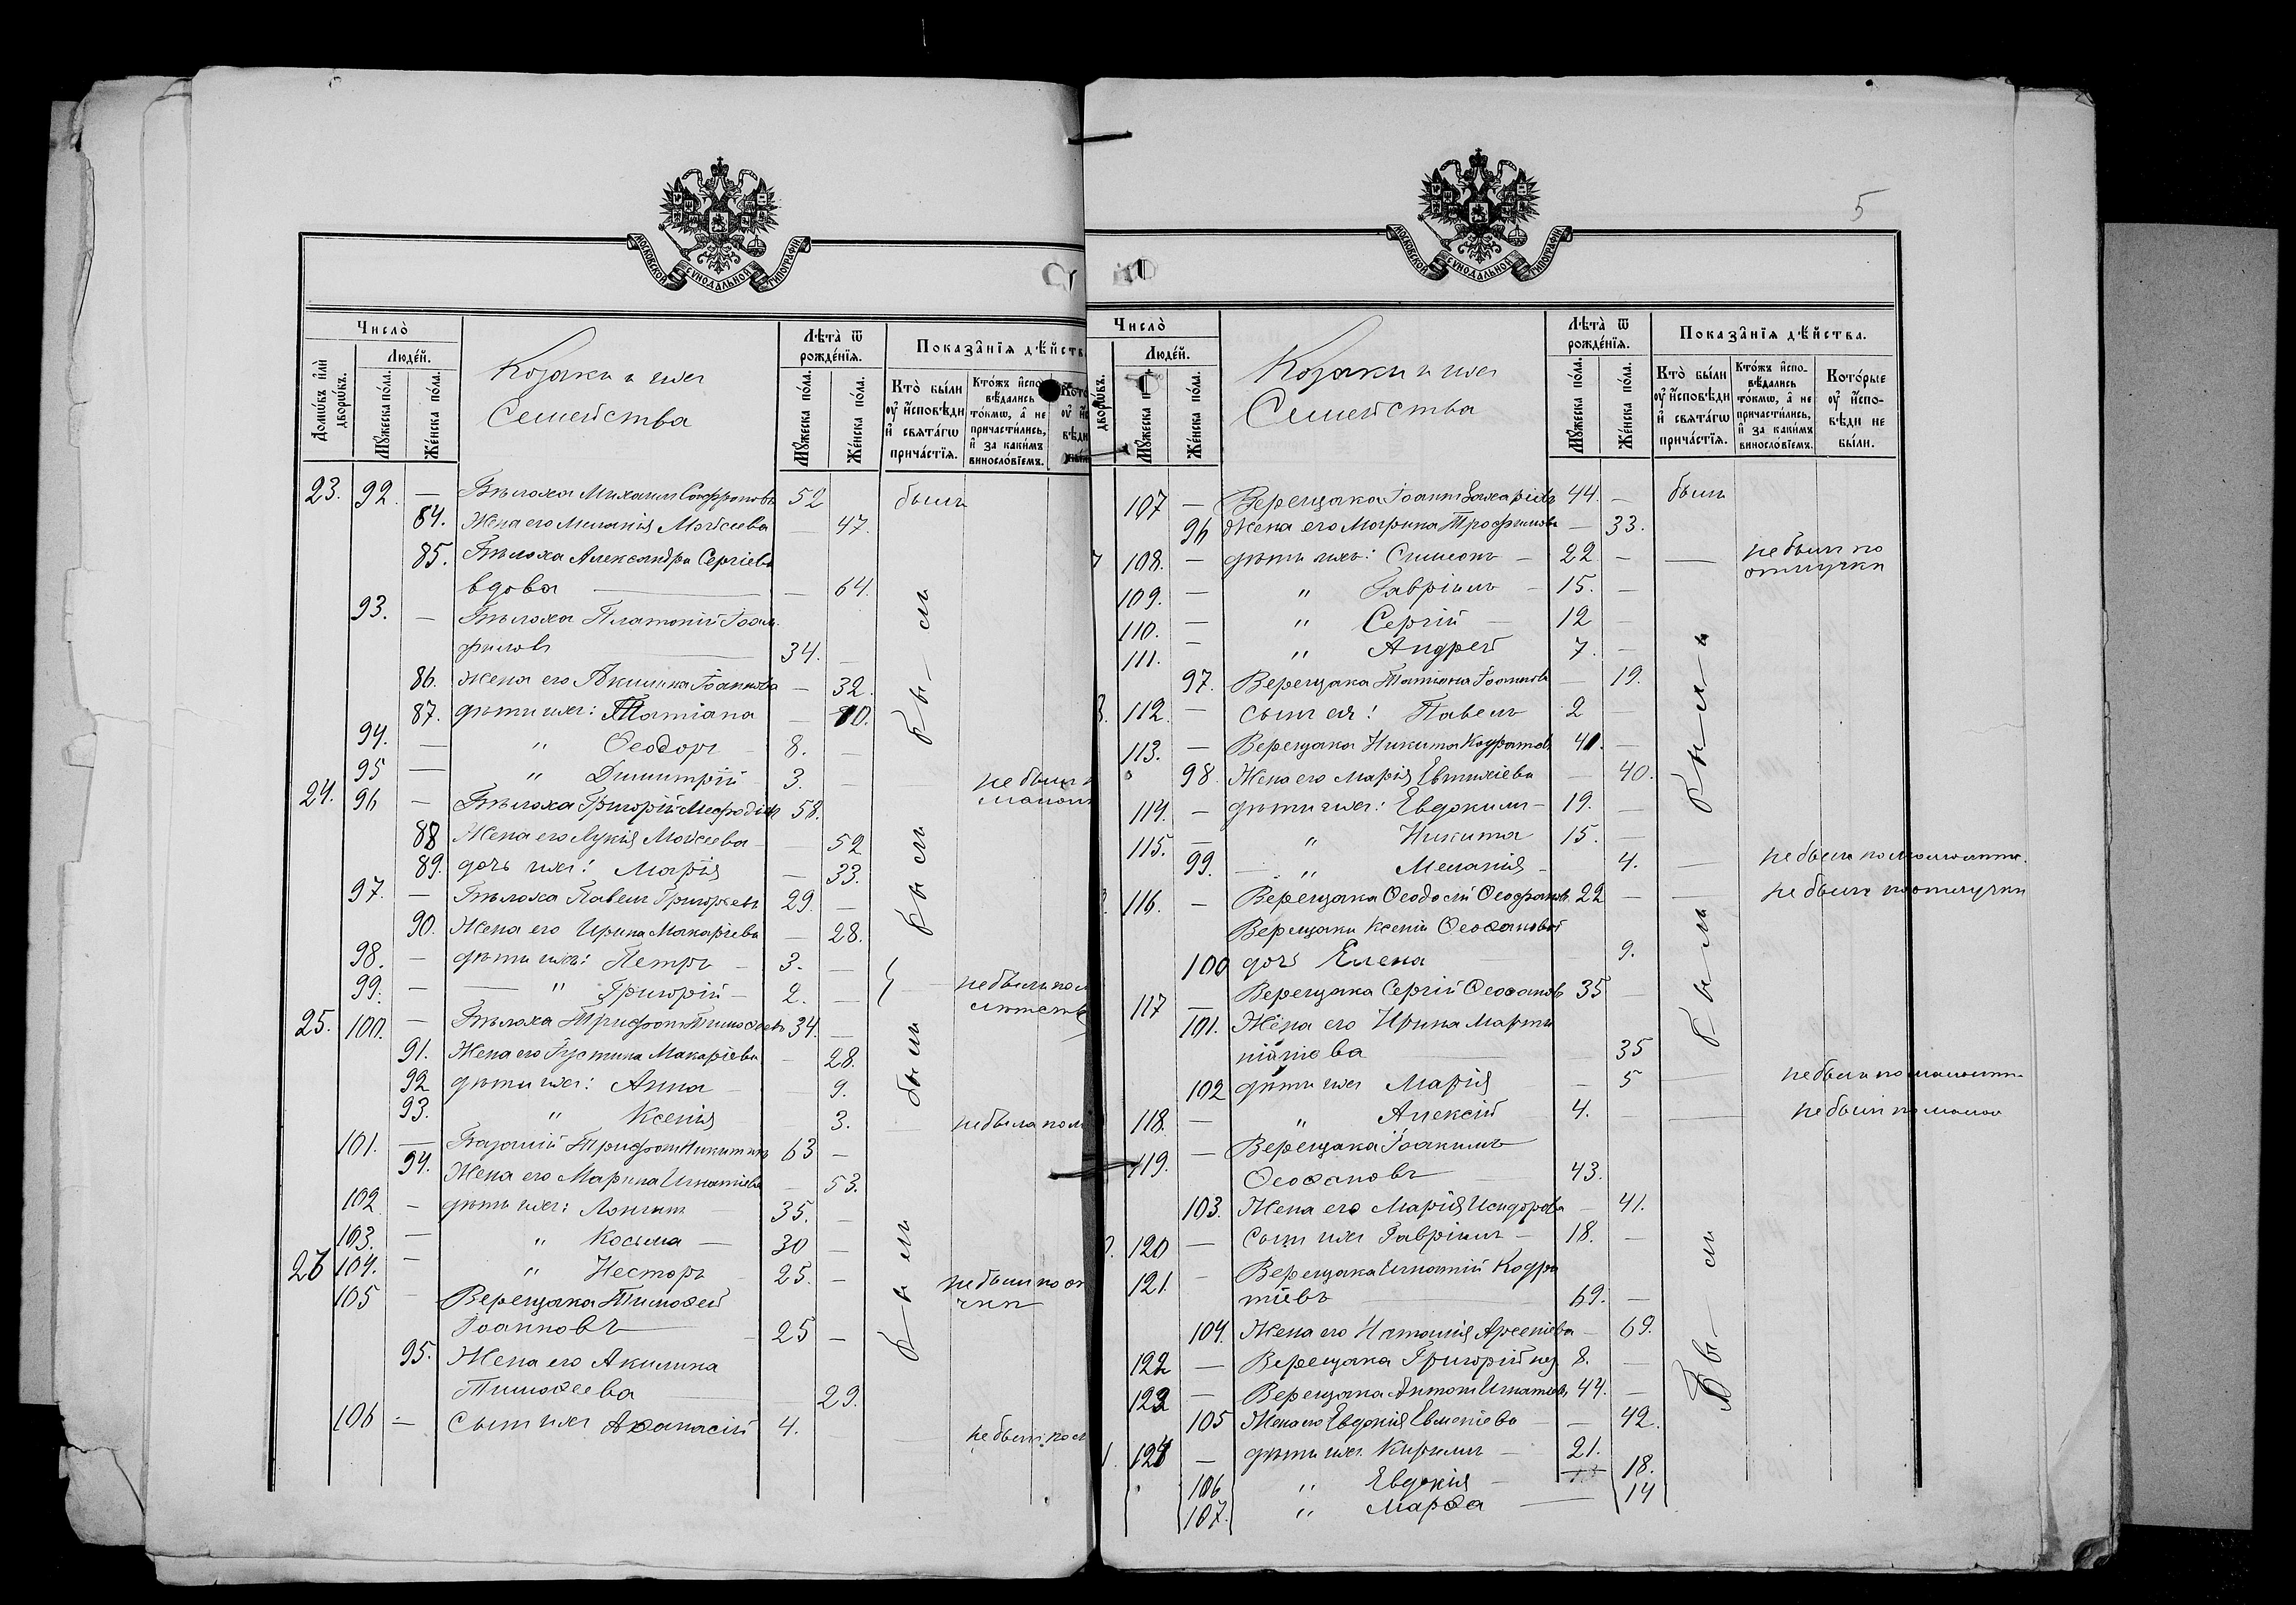 МОСКОВСКОЙ СѴНОДАЛЬНОЙ ТИПОГРАФІИ
Число̀
Люде́й.
Домѡ́въ и҆лѝ дворѡ́въ.
Мꙋ́жеска по́ла.
Же́нска по́ла.
Козаки и ихъ
Семейства
Лѣта̀ ѿ рожде́нїѧ.
Мꙋ́жеска по́ла.
Же́нска по́ла.
Показа̑нїѧ дѣ́йств
Кто̀ бы́ли оу҆ и҆сповѣ́ди и҆ свѧта́гѡ прича́стїѧ.
Кто́жъ и҆спо вѣ́дались то́кмѡ, а҆ не причасти́лись, и҆ за каки́мъ винословїемъ.
23. 92. — Бѣлоха Михаилъ Софроновъ 52 былъ
84. Жена его Меланія Моѵсеева — 47.
85. Бѣлоха Александра Сергіева
вдова — 64.
93. — Бѣлоха Платоній Іоан
филовъ 34. —
86. Жена его Акилина Іоаннова — 32.
87. дѣти ихъ: Татіана — 10.
94. — " Ѳеодоръ 8. —
95 — " Димитрій 3. — не былъ
24. 96 — Бѣлоха Григорій Меѳодіев 58.
88 Жена его Лукія Моѵсеева — 52
89. дочь ихъ: Марія — 33.
97. — Бѣлоха Павелъ Григорьевъ 29 —
90. Жена его Ирина Макаріева — 28.
98. — дѣти ихъ: Петръ — 3. —
99. — " Григорій — 2. — не былъ по
25. 100. — Бѣлоха Трифонъ Тимоѳеевъ 34. —
91. Жена его Іустина Макаріева — 28.
92 дѣти ихъ: Анна — 9.
93. " Ксенія 3. — не была по
101. — Трифонъ Никитинъ 63 —
94. Жена его Марина Игнатіева — 53.
102 — дѣти ихъ: Логинъ 35. —
103. — " Косьма — 30 —
26 104. — " Несторъ 25. — не были по
105 — Верещака Тимоѳей
Іоанновъ — 25 —
95. Жена его Акилина
Тимоѳеева 29.
106 — Сынъ ихъ Аѳанасій 4. — не былъ по
Бы—ли
Были
были
Были
5
МОСКОВСКОЙ СѴНОДАЛЬНОЙ ТИПОГРАФІИ
Число̀
Люде́й.
дворѡ́въ.
Мꙋ́жеска
Же́нска по́ла.
Козаки и ихъ
Семейства
Лѣта̀ ѿ рожде́нїѧ.
Мꙋ́жеска по́ла.
Же́нска по́ла.
Показа̑нїѧ дѣ́йства.
Кто̀ бы́ли оу҆ и҆сповѣ́ди и҆ свѧта́гѡ прича́стїѧ.
Кто́жъ и҆спо- вѣ́дались то́кмѡ, а҆ не причасти́лись, и҆ за каки́мъ винословїемъ.
Кото́рые оу҆ и҆спо- вѣ́ди не бы́ли.
107 — Верещака Іоаннъ Захаріевъ 44. — былъ
96 Жена его Марина Трофимова — 33.
108. — дѣти ихъ: Симеонъ — 22 — — не былъ по
отлучки
109. — " Гавріилъ — 15. —
110. — " Сергій — 12 —
111. — " Андрей 7. —
97. Верещака Татіана Іоаннова — 19.
112. — сынъ ея: Павелъ 2 —
113. — Верещака Никита Кодратов. 41. —
98. Жена его Марія Евтихіева — 40.
114. — дѣти ихъ: Евдокимъ — 19. —
115. — " Никита 15. —
99. — " Меланія — 4. — не была по малолѣт.
116. — Верещака Ѳеодосій Ѳеофанов. 22 — — не былъ по отлучки
Верещаки Ксеніи Ѳеофановой
100 дочь Елена 9.
117 — Верещака Сергій Ѳеофановъ 35 —
101. Жена его Ирина Марти
ніанова 35
102 дѣти ихъ Марія — 5 — не была по малолѣт.
118. — " Алексій 4. — — не былъ по малол
119. — Верещака Іоакимъ
Ѳеофановъ 43.
103. Жена его Марія Исидорова — 41.
120 — Сынъ ихъ Гавріилъ — 18. —
121. — Верещака Игнатій Кодра
тіевъ 69. —
104. Жена его Наталія Арсеніева — 69.
122 — Верещака Григорій 8. —
123 — Верещака Антонъ Игнатіевъ 44. —
105 Жена его Евдокія Евменіева — 42.
124 — дѣти ихъ Кириллъ — 21.
106 " Евдокія — 18.
107. " Марѳа — 14
Были
Были
Бы—ли